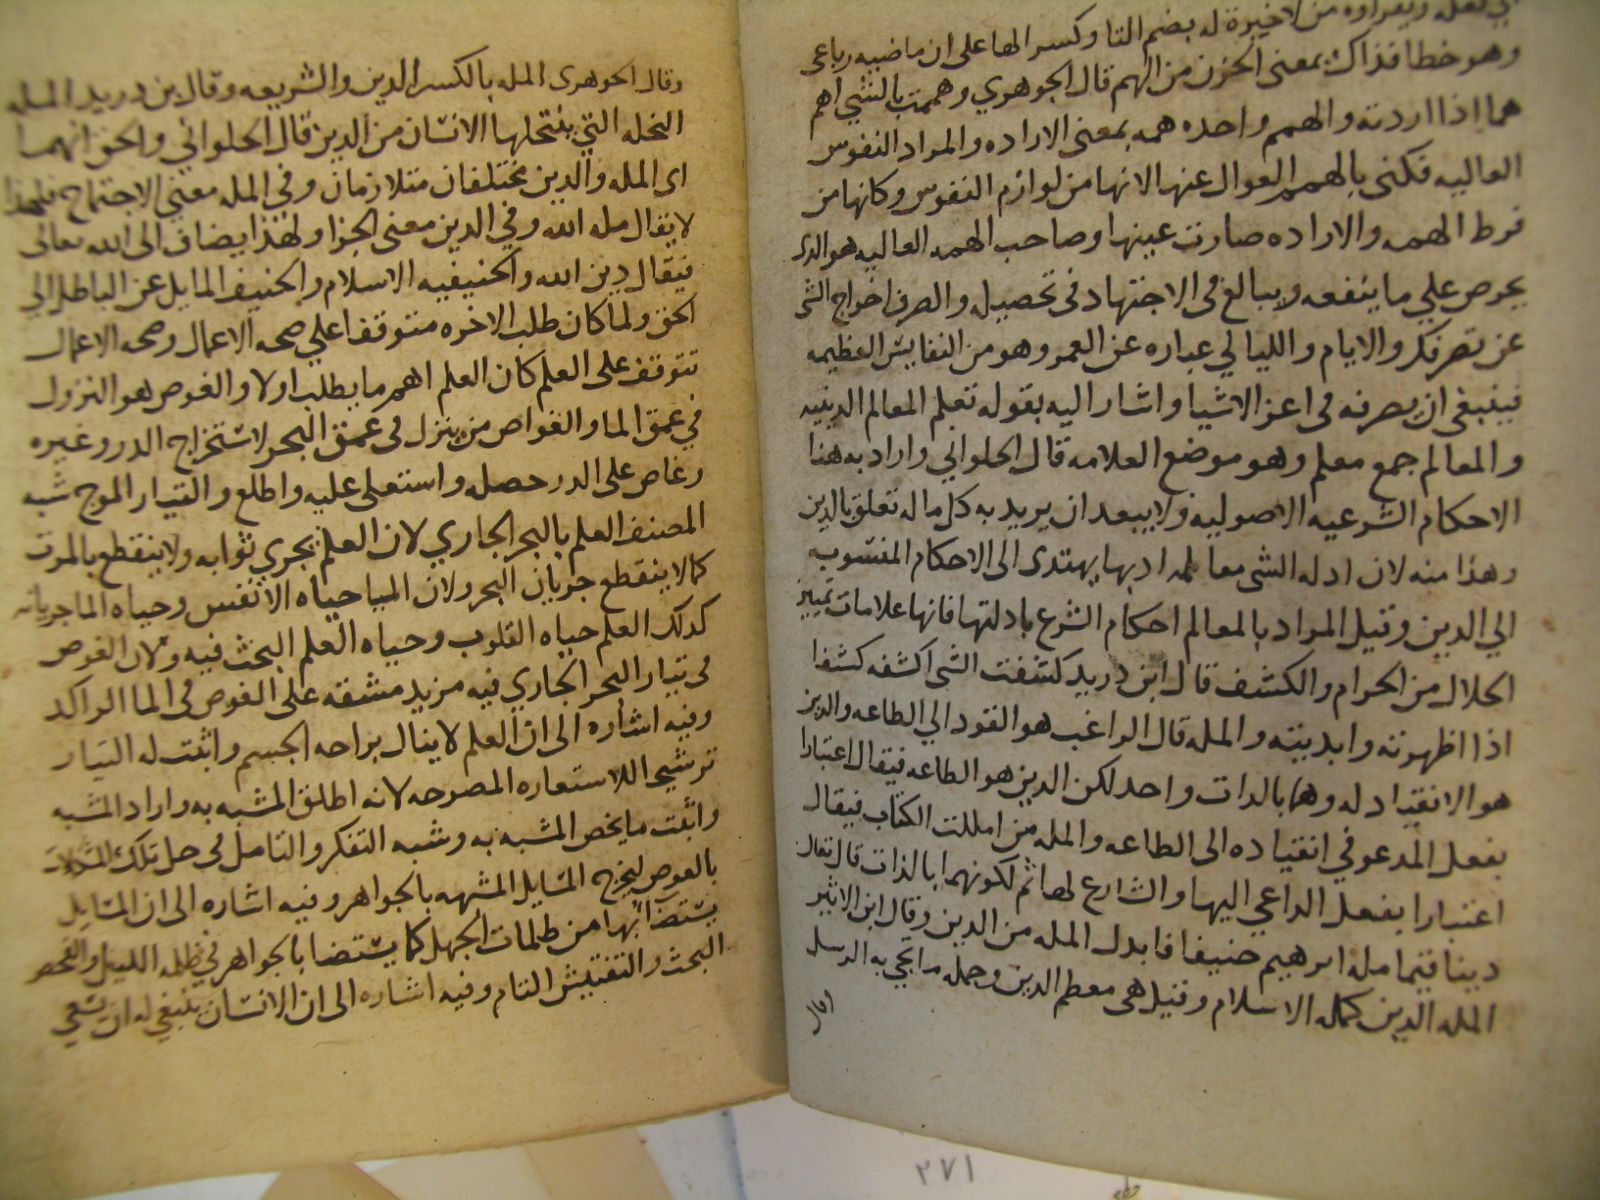 وهو خطا فذاك بمعنى الحزن من الهم قال الجوهري وهممت بالشي اهم
هما اذا اردته والهمم واحده همه بمعنى الاراده والمراد النفوس
العاليه فكنى بالهمم العوال عنها لانها من لوازم النفوس وكانها من
فرط الهمه والاراده صارت عينها وصاحب الهمه العاليه هو الذى
يحرص علي ما ينفعه ويبالغ فى الاجتهاد فى تحصيله والصرف اخراج الشى
عن تصرفك والايام والليالي عباره عن العمر وهو من النفايس العظيمه
فينبغى ان يصرفه فى اعز الاشيا واشار اليه بقوله تعلم المعالم الدينيه
والمعالم جمع معلم وهو موضع العلامه قال الحلواني واراد به هنا
الاحكام الشرعيه الاصوليه ولا يبعد ان يريد به كل ما له تعلق بالدين
وهذا منه لان ادله الشى معالمه اذ بها يهتدى الى الاحكام المنسوبه
الي الدين وقيل المراد بالمعالم احكام الشرع بادلتها فانها علامات تمييز
الحلال من الحرام والكشف قال ابن دريد كشفت الشى اكشفه كشفا
اذا اظهرته وابديته والمله قال الراغب هو القود الي الطاعه والدين
هو الانقياد له وهما بالذات واحد لكن الدين هو الطاعه فيقال اعتبارا
بفعل المدعو في انقياده الى الطاعه والمله من امللت الكتاب فيقال
اعتبارا بفعل الداعي اليها والشارع لها ثم لكونهما بالذات قال تعالى
دينا قيما مله ابرهيم حنيفا فابدل المله من الدين وقال ابن الاثير
المله الدين كمله الاسلام وقيل هى معظم الدين وجمله ما يجي به الرسل
وقال
وقال الجوهرى المله بالكسر الدين والشريعه وقال بن دريد المله
النحله التي ينتحلها الانسان من الدين قال الحلواني والحق انهما
اى المله والدين مختلفان متلازمان وفي المله معنى الاجتماح فلهذا
لا يقال مله الله وفي الدين معنى الجزا ولهذا يضاف الى الله تعالى
فيقال دين الله والحنيفيه الاسلام والحنيف المايل عن الباطل الي
الحق ولما كان طلب الاخره متوقفا علي صحه الاعمال وصحه الاعمال
تتوقف على العلم كان العلم اهم ما يطلب اولا والغوص هو النزول
في عمق الما والغواص من ينزل فى عمق البحر لاستخراج الدر وغيره
وغاص على الدر حصله واستعلى عليه واطلع والتيار الموج شبه
المصنف العلم بالبحر الجاري لان العلم يجري ثوابه ولا ينقطع بالموت
كما لا ينقطع جريان البحر ولان الما حياه الانفس وحياه الما جريانه
كذلك العلم حياه القلوب وحياه العلم البحث فيه ولان الغوص
فى تيار البحر الجاري فيه مزيد مشقه على الغوص فى الما الراكد
وفيه اشاره الى ان العلم لا ينال براحه الجسم واثبت له التيار
ترشيحا للاستعاره المصرحه لانه اطلق المشبه به واراد المشبه
واثبت ما يخص المشبه به وشبه التفكر والتامل فى حل تلك المشكلات
بالغوص ليخرج المسايل المشبهه بالجواهر وفيه اشاره الى ان المسايل
يستضا بها من ظلمات الجهل كما يستضا بالجواهر في ظلمه الليل والفحص
البحث والتفتيش التام وفيه اشاره الى ان الانسان ينبغي له ان يسعي
٢٧١